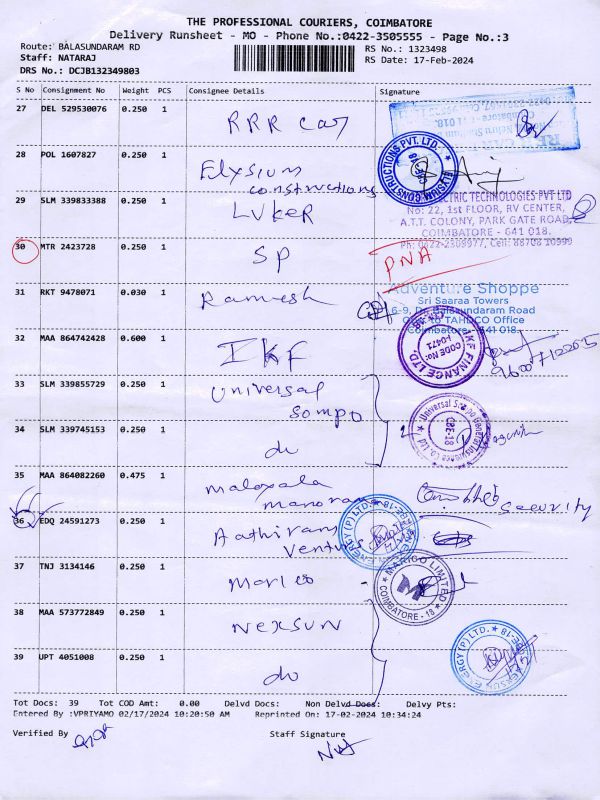 THE PROFESSIONAL COURIERS, COIMBATORE
Delivery Runsheet - MO - Phone No.:0422-3505555 - Page No.:3
Route: BALASUNDARAM RD
RS No.: 1323498
Staff: NATARAJ
RS Date: 17-Feb-2024
DRS No.: DCJB132349803
S No Consignment No Weight PCS Consignee Details Signature
27 DEL 529530076 0.250 1 RRR Car
28 POL 1607827 0.250 1 Elysium constructions
ELYSIUM CONSTRUCTIONS PVT. LTD.
29 SLM 339833388 0.250 1 LUKER
ELECTRIC TECHNOLOGIES PVT LTD
No: 22, 1st FLOOR, RV CENTER,
A.T.T. COLONY, PARK GATE ROAD,
COIMBATORE - 641 018.
Ph: 0422-2309977, Cell: 88708 10999
30 MTR 2423728 0.250 1 SP PNA
31 RKT 9478071 0.030 1 Ramesh
Adventure Shoppe
Sri Saaraa Towers
6-9, Dr. Balasundaram Road
Opp to TAHDCO Office
Coimbatore - 641 018.
32 MAA 864742428 0.600 1 IKF
IKF FINANCE LTD.
CODE No: I-0471
33 SLM 339855729 0.250 1 Universal Sompo
Universal Sompo General Insurance Co. Ltd
CBE-18
34 SLM 339745153 0.250 1 do
2
35 MAA 864082260 0.475 1 Malayala manorama
Security
36 EDQ 24591273 0.250 1 Aathirany Ventures
37 TNJ 3134146 0.250 1 Marico
MARICO LIMITED
COIMBATORE - 18
38 MAA 573772849 0.250 1 Nexsun
NEXSUN ENERGY (P) LTD. CBE-18
39 UPT 4051008 0.250 1 do
Tot Docs: 39 Tot COD Amt: 0.00 Delvd Docs: Non Delvd Docs: Delvy Pts:
Entered By :VPRIYAMO 02/17/2024 10:20:50 AM Reprinted On: 17-02-2024 10:34:24
Verified By
Staff Signature